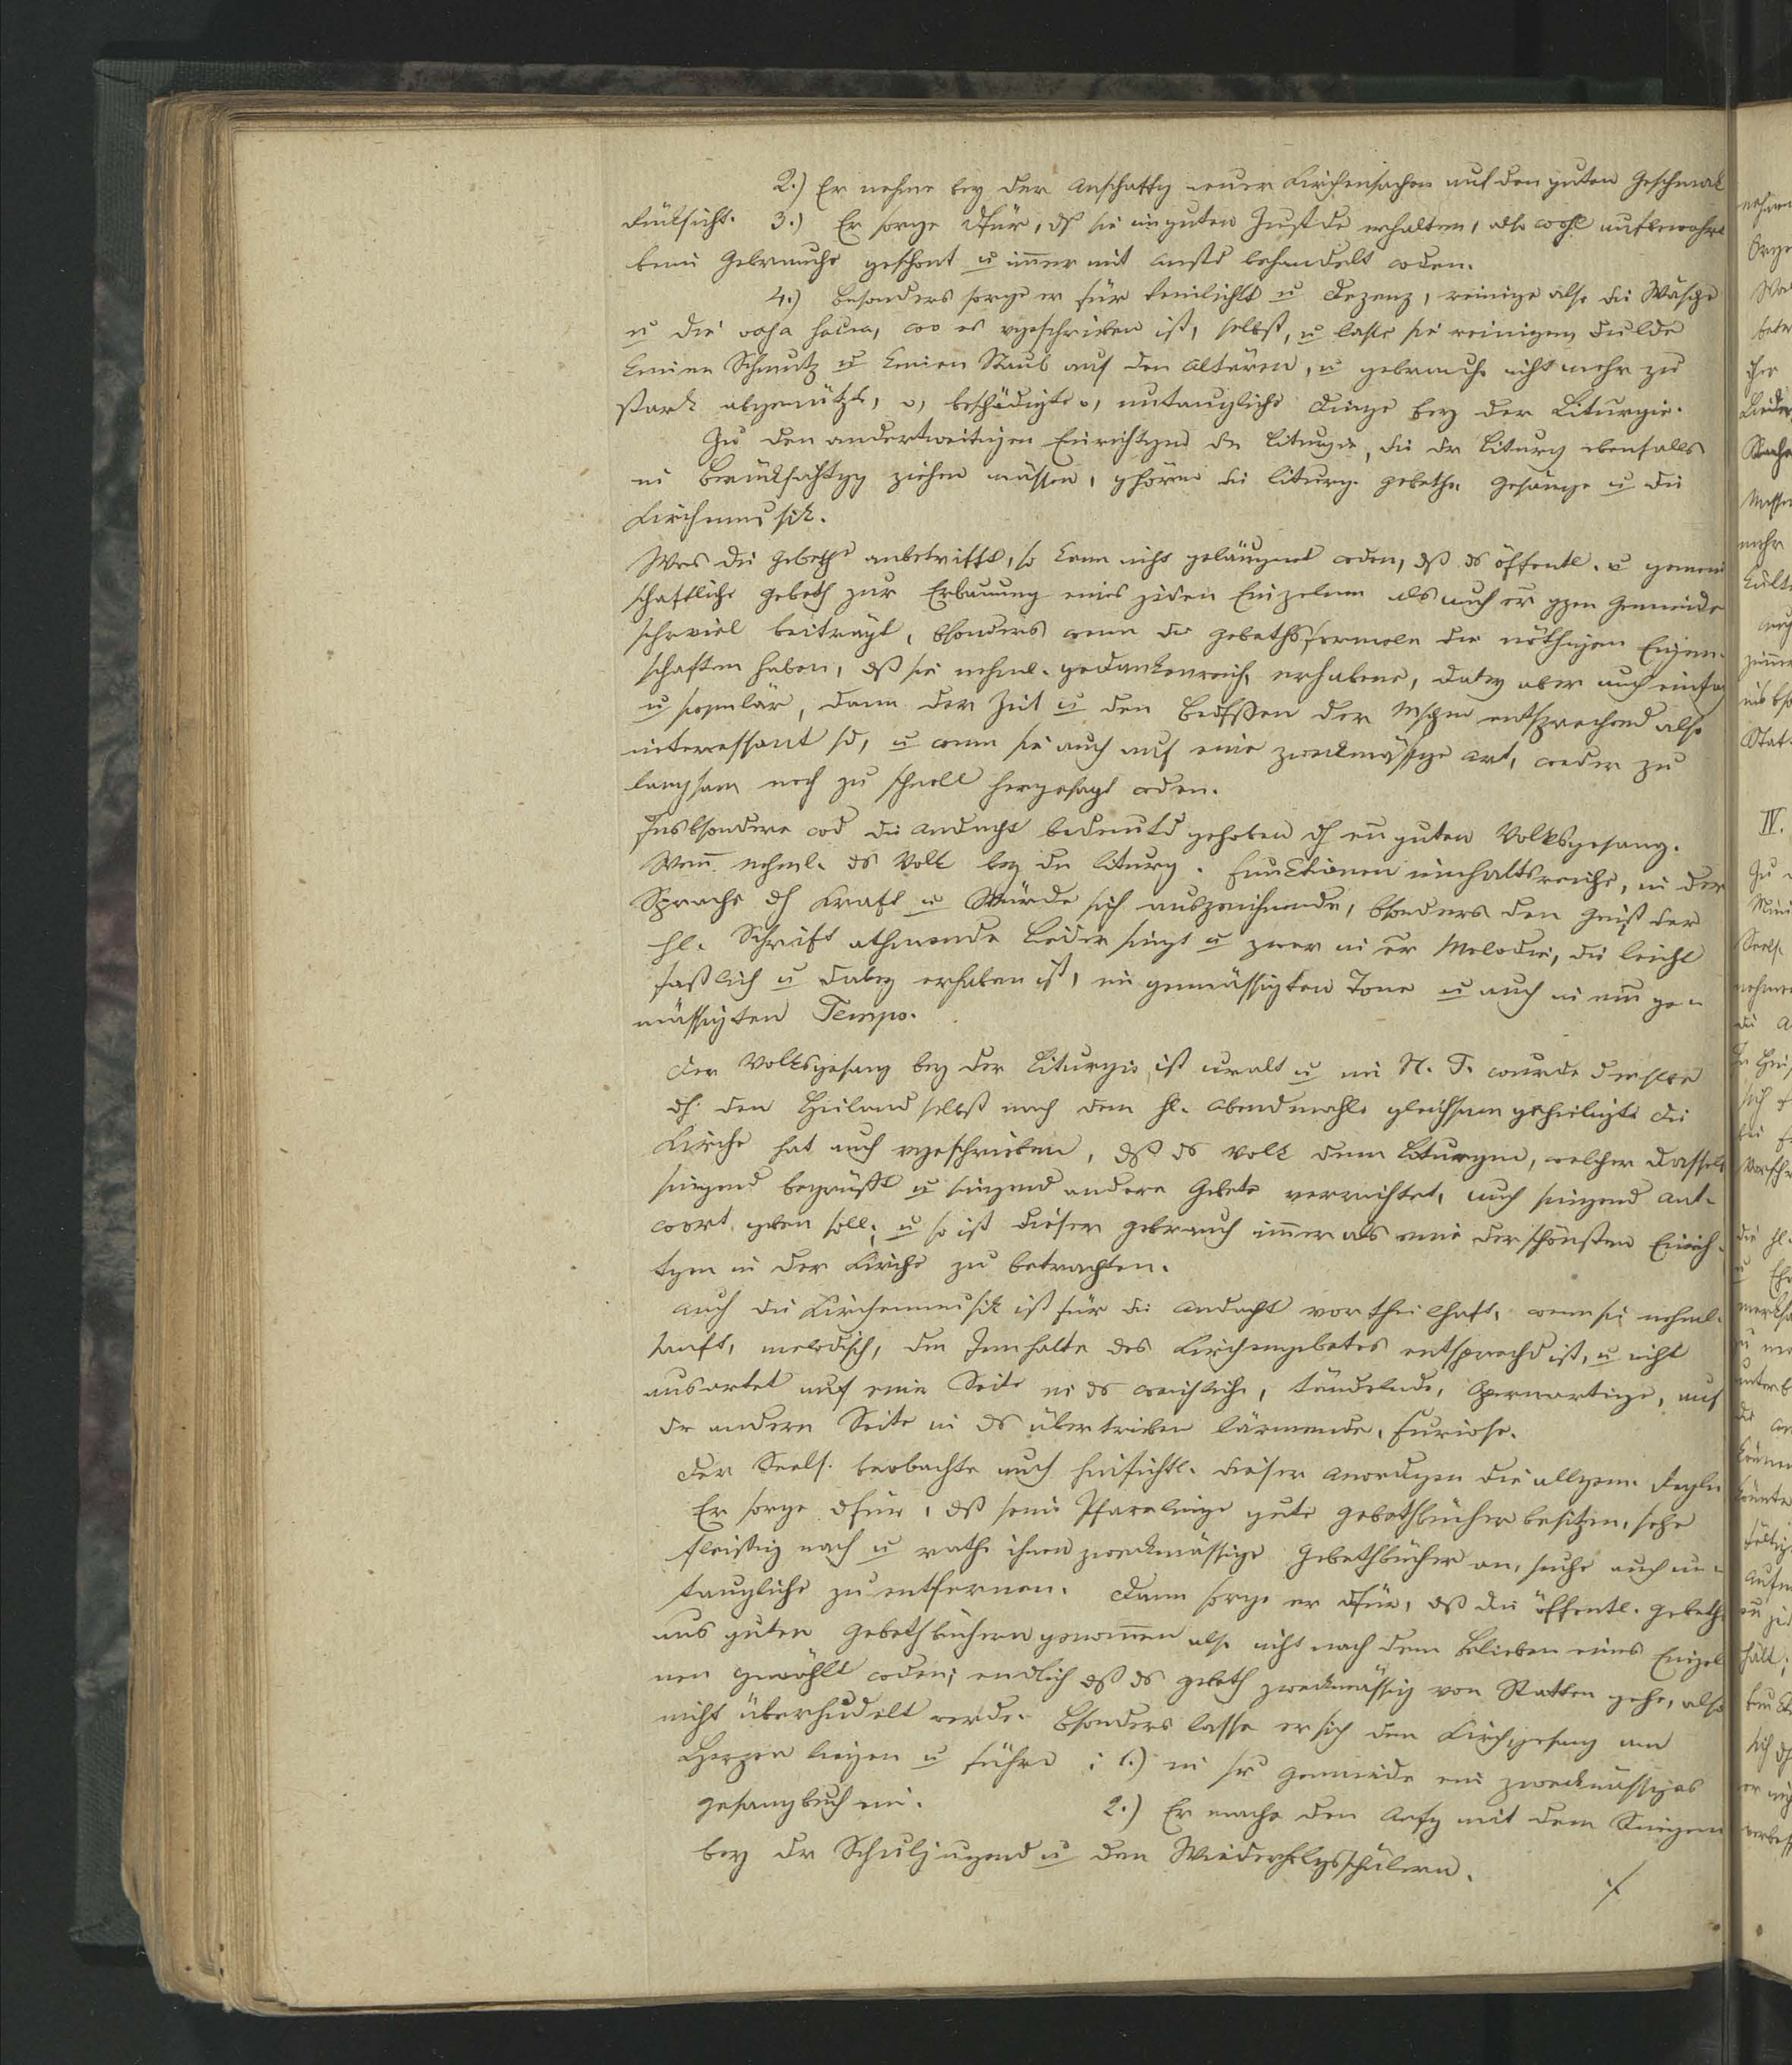 2.) Er nehme bey der Anschaffg neuer Kirchensachen auf den guten Geschmak
Rüksicht. 3.) Er sorge dfür, dß sie im guten Zustde erhalten, also wohl aufbewahrt
beim Gebrauche geschont u immer mit Anstd behandelt wden.
4.) Besonders sorge er für Reinlichkt u Dezenz, reinige also die Wäsche
u die vasa sacra, wo es vgeschrieben ist, selbst, u lasse sie reinigen, dulde
keinen Schmutz u keinen Staub auf den Altären, u gebrauche nicht mehr zu
stark abgenützte, o, beschädigte o, untaugliche Dinge bey der Liturgie.
Zu den anderweitigen Einrichtgen der Liturgie, die der Liturg ebenfalls
in Berüksichtgg ziehen müssen, ghören die liturg. Gebethe Gesänge u die
Kirchenmusik.
Was die Gebethe anbetrifft, so kann nicht geläugnet wden, dß ds öffentl. u gemein
schaftliche Gebeth zur Erbauung eines jeden Einzelnen als auch er gzen Gemeinde
sehr viel beiträgt, bsonders wenn die Gebethsformeln die nöthigen Eigen-
schaften haben, dß sie nehml. gedankenreich, erhabene, dabey aber auch einfach
u populär, dann der Zeit u den Bedfssen der Mschen entsprechend also
interessant sd, u wenn sie auch auf eine zwekmässige Art, weder zu
langsam noch zu schnell hergesagt wden.
Insbsondere wd die Andacht bedeutd gehoben dch ein guten Volksgesang.
Wenn nehml. ds Volk bey den liturg. Funktionen innhaltsreiche, in der
Sprache dch Kraft u Würde sich auszeichnende, bsonders den Geist der
hl. Schrift athmende Lieder singt u zwar in er Melodie, die leicht
faßlich u dabey erhaben ist, im gemässigten Tone u auch in ein ge-
mässigten Tempo.
Der Volksgesang bey der Liturgie ist uralt u im N. T. wurde dieselbe
dch den Heiland selbst nach dem hl. Abendmahle gleichsam geheiligt. Die
Kirche hat auch vgeschrieben, dß ds Volk dem Liturgen, welcher dasselb
singend begrüßt u singend andere Gebete verrichtet, auch singend Ant-
wort geben soll; u so ist dieser Gebrauch immer als eine der schönsten Einrich-
tgen in der Kirche zu betrachten.
Auch die Kirchenmusik ist für die Andacht vortheilhaft, wenn sie nehml.
sanft, melodisch, dem Innhalte des Kirchengebetes entsprechd ist, u nicht
ausartet auf einer Seite in ds weichliche, tändelnde, Opernartige, auf
der andern Seite in ds übertrieben lärmende, Furiose.
Der Seels. beobachte auch hinsichtl. dieser Anordgen die allgem. Regeln
Er sorge dfür, dß seine Pfarrlinge gute Gebethbücher besitzen, sehe
fleißig nach u rathe ihnen zwekmässige Gebethbücher an, suche auch un-
taugliche zu entfernen. Dann sorge er dfür, dß die öffentl. Gebethe
aus guten Gebethbüchern genommen also nicht nach dem Belieben eines Einzel
nen gewählt wden; endlich dß ds Gebeth zwekmässig von Statten gehe, also
nicht überhudelt werde. Bsonders lasse er sich den Kirchgesang am
Herzen liegen u führe 1.) in sr Gemeinde ein zwekmässiges
Gesangbuch ein. 2.) Er mache den Anfg mit dem Singen
bey der Schuljugend u den Wiederholgsschülern.
./.
IV.